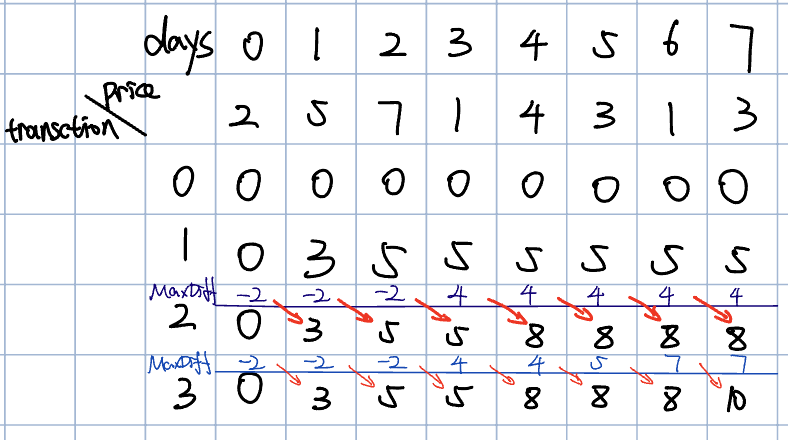 days 0 1 2 3 4 5 6 7
price
transction 2 5 7 1 4 3 1 3
0 0 0 0 0 0 0 0 0
1 0 3 5 5 5 5 5 5
MaxDiff -2 -2 -2 4 4 4 4 4
2 0 3 5 5 8 8 8 8
MaxDiff -2 -2 -2 4 4 5 7 7
3 0 3 5 5 8 8 8 10